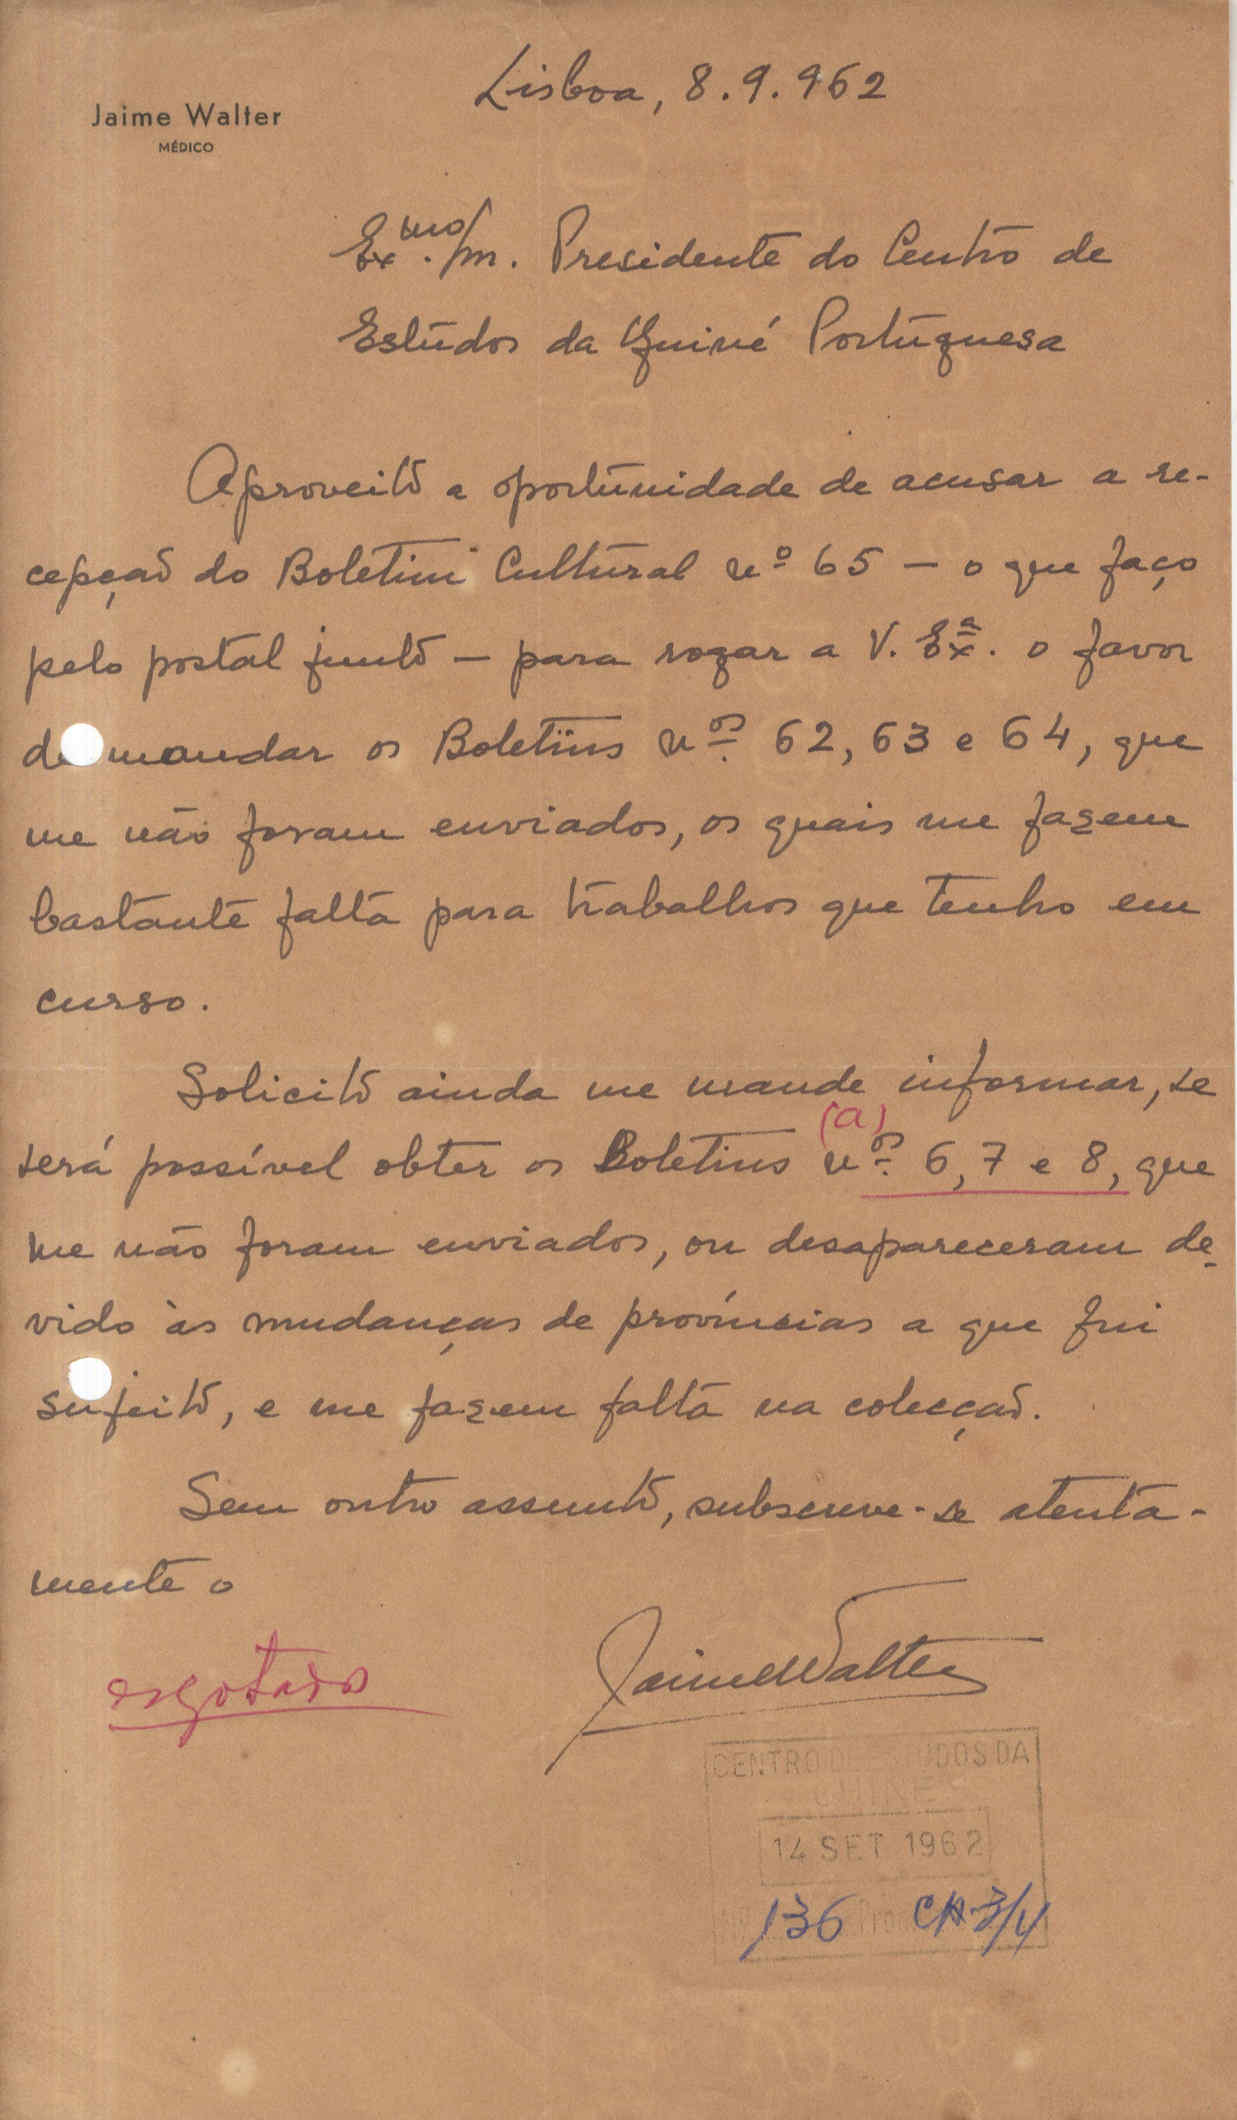 Lisboa, 8.9.962
Jaime Walter
MÉDICO
Exmo. Sr. Presidente do Centro de
Estudos da Guiné Portuguesa
Aproveito a oportunidade de acusar a re-
cepção do Boletim Cultural nº 65 – o que faço
pelo postal junto – para rogar a V. Exª. o favor
de mandar os Boletins nos. 62, 63 e 64, que
me não foram enviados, os quais me fazem
bastante falta para trabalhos que tenho em
curso.
Solicito ainda me mande informar, se
(a)
será possível obter os Boletins nos. 6, 7 e 8, que
me não foram enviados, ou desapareceram de-
vido às mudanças de províncias a que fui
sujeito, e me fazem falta na colecção.
Sem outro assunto, subscreve-se atenta-
mente o
esgotados
Jaime Walter
CENTRO DE ESTUDOS DA
GUINÉ
14 SET 1962
136 CA-3/4